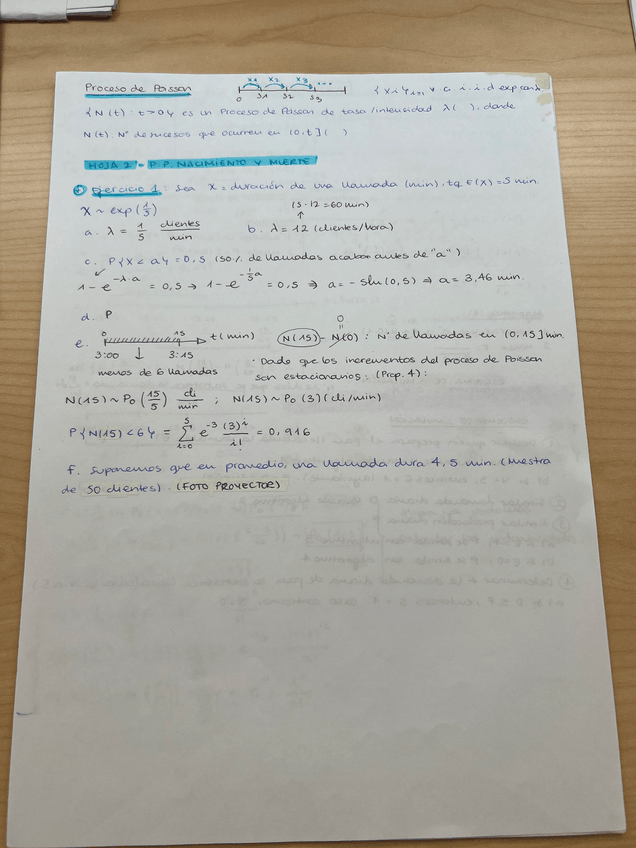 Proceso de Poisson
x1 x2 x3 ...
0 S1 S2 S3
{Xi}i≥1 v.a. i.i.d exp con λ
{N(t): t>0} es un Proceso de Poisson de tasa/intensidad λ( ), donde
N(t): Nº de sucesos que ocurren en (0,t] ( )
HOJA 2 - P.P. NACIMIENTO Y MUERTE
Ejercicio 1: Sea X = duración de una llamada (min), tq E(X) = 5 min.
X ~ exp(1/5)
(5·12 = 60 min)
a. λ = 1/5 clientes/min
b. λ = 12 (clientes/hora)
c. P{X < a} = 0,5 (50% de llamadas acaban antes de "a")
1 - e^(-λ·a) = 0,5 ⇒ 1 - e^(-1/5 a) = 0,5 ⇒ a = -5ln(0,5) ⇒ a = 3,46 min.
d. P
e. 0 15 t(min)
3:00 ↓ 3:15
menos de 6 llamadas
0
N(15) - N(0): Nº de llamadas en (0,15] min.
· Dado que los incrementos del proceso de Poisson
son estacionarios: (Prop. 4):
N(15) ~ Po(15/5) cli/min ; N(15) ~ Po(3) (cli/min)
P{N(15) < 6} = ∑_(i=0)^5 e^-3 (3)^i / i! = 0,916
f. Suponemos que en promedio, una llamada dura 4,5 min. (Muestra
de 50 clientes). (FOTO PROYECTOR)